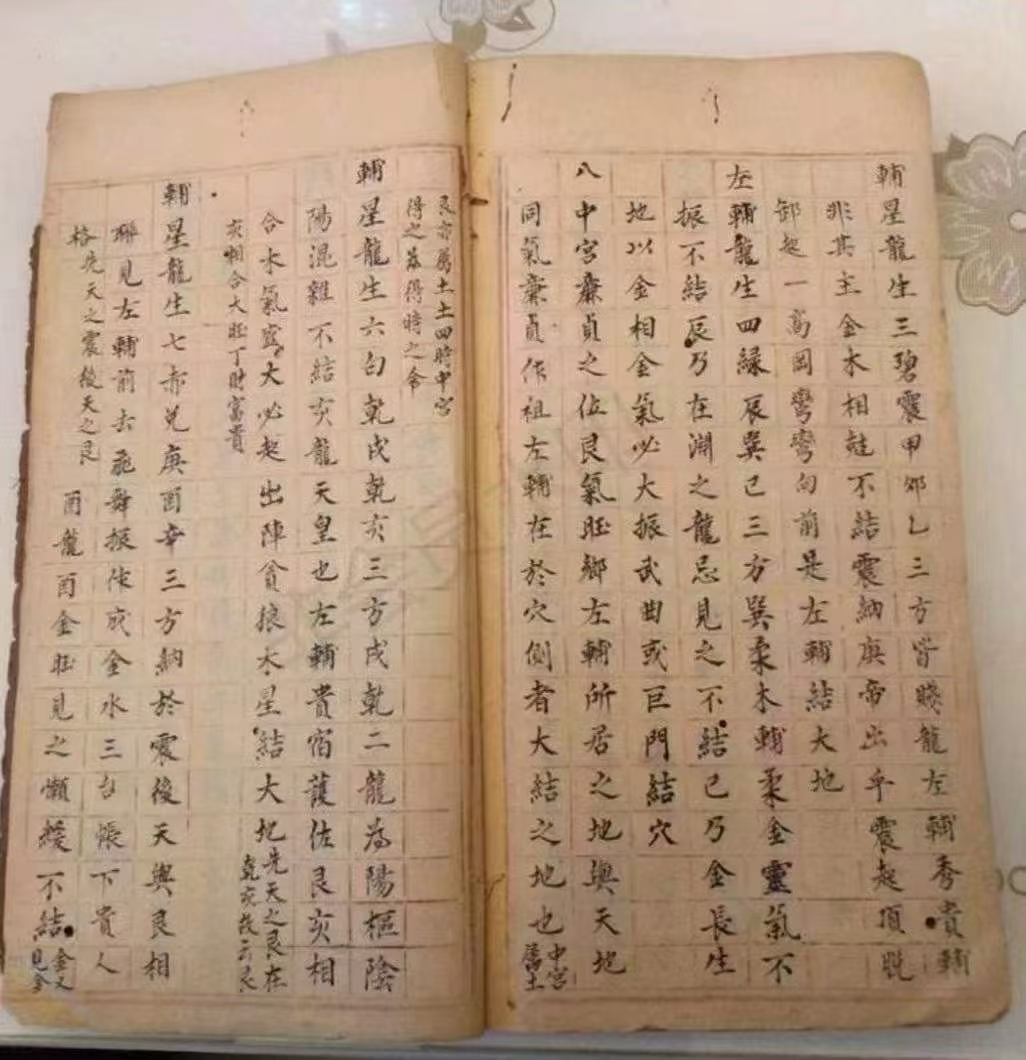 輔星龍生三碧震甲卯乙三方皆賤龍左輔秀貴輔
非其主金木相尅不結震納庚帝出乎震起頂脫
卸起一高岡彎彎向前是左輔結大地
左輔龍生四綠辰巽已三方巽柔木輔柔金靈氣不
振不結辰乃在淵之龍忌見之不結已乃金長生
地以金相金氣必大振武曲或巨門結穴
八中宮廉貞之位艮氣旺鄉左輔所居之地與天地
同氣廉貞作祖左輔在於穴側者大結之地也中宮
屬土
艮亦屬土土四時中宮
得之為得時之令
輔星龍生六白乾戌乾亥三方戌乾二龍為陽樞陰
陽混雜不結亥龍天皇也左輔貴宿護佐艮亥相
合木氣盛大必起出陣貪狼木星結大地先天之艮在
乾亥故云艮
亥相合大旺丁財富貴
輔星龍生七赤兌庚酉辛三方納於震後天與艮相
聯見左輔前去飛舞振作成金水三台帳下貴人
格先天之震後天之艮
酉龍酉金旺見之懶緩不結金又
見金